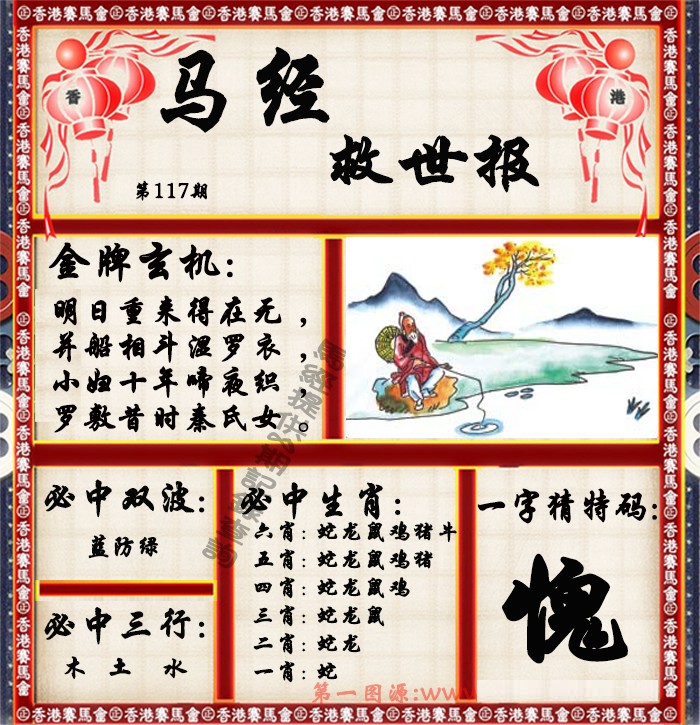 香港賽馬會
香
港
马经
救世报
第117期
金牌玄机:
明日重来得在无,
并船相斗湿罗衣,
小妇十年啼夜织,
罗敷昔时秦氏女。
必中双波:
蓝防绿
必中三行:
木 土 水
必中生肖:
六肖:蛇龙鼠鸡猪牛
五肖:蛇龙鼠鸡猪
四肖:蛇龙鼠鸡
三肖:蛇龙鼠
二肖:蛇龙
一肖:蛇
一字猜特码:
愧
第一图源:www.